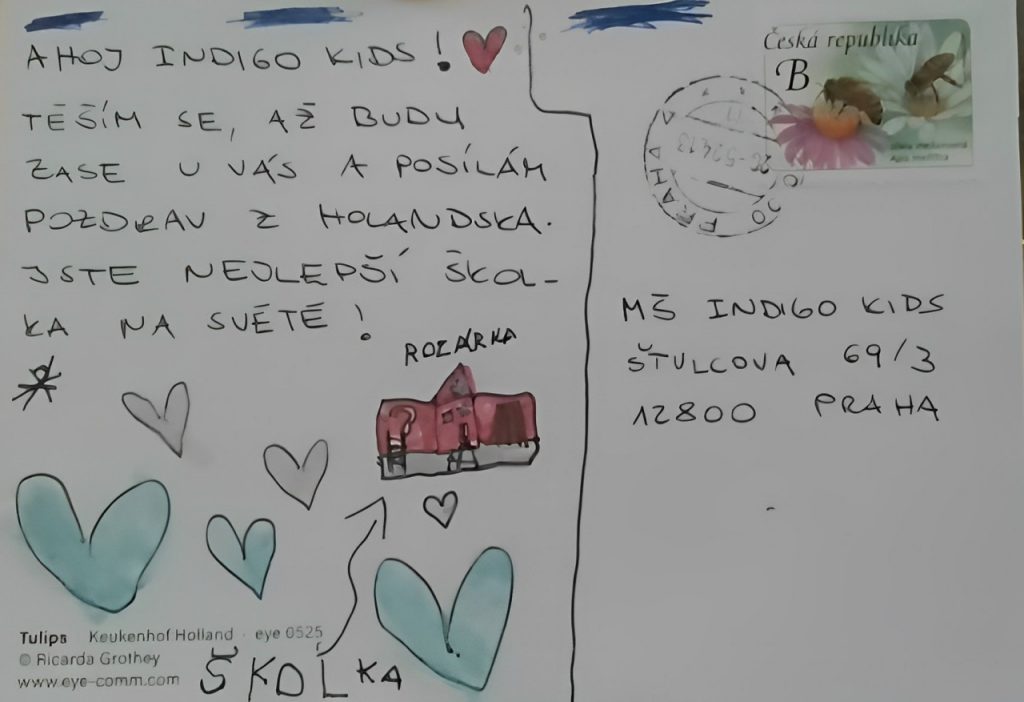 AHOJ INDIGO KIDS!
TĚŠÍM SE, AŽ BUDU
ZASE U VÁS A POSÍLÁM
POZDRAV Z HOLANDSKA.
JSTE NEJLEPŠÍ ŠKOL-
KA NA SVĚTĚ!
ROZÁRKA
ŠKOLKA
Tulips Keukenhof Holland · eye 0525
© Ricarda Grothey
www.eye-comm.com
Česká republika
B
Apis mellifera
PRAHA
MŠ INDIGO KIDS
ŠTULCOVA 69/3
12800 PRAHA